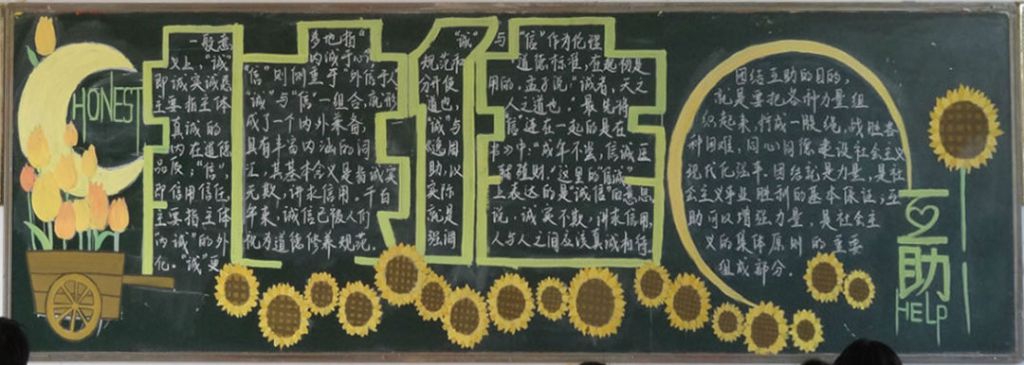 HONEST
一般意
义上，"诚"
即诚实诚恳
主要指主体
真诚的
内在道德
品质；"信"，
即信用信任，
主要指主体
内诚"的外
化。"诚"更
多地指"
内诚于心"，
"信"则侧重于"外信于人"
"诚"与"信"一组合，就形
成了一个内外兼备，
具有丰富内涵的词
汇，其基本含义是指诚实
无欺，讲求信用。千百
年来，诚信已被人们
视为道德修养规范。
"诚"
规范和
分开使
道也，
"诚"与
助，以
实际
就是
强调
与"信"作为伦理
道德标准，在起初是
用的，孟子说"诚者，天之
人之道也。"最先将
"信"连在一起的是在
书》中，"成年不尝，信诚匡
辅殖财。"这里的"信诚"
上表达的是"诚信"的意思
说，诚实不欺，讲求信用，
人与人之间应该真诚相待
团结互助的目的，
就是要把各种力量组
织起来，拧成一股绳，战胜各
种困难，同心同德建设社会主义
现代化法年。团结就是力量，是社
会主义事业胜利的基本保证；互
助可以增强力量，是社会主
义的集体原则的重要
组成部分。
互
助
HELP